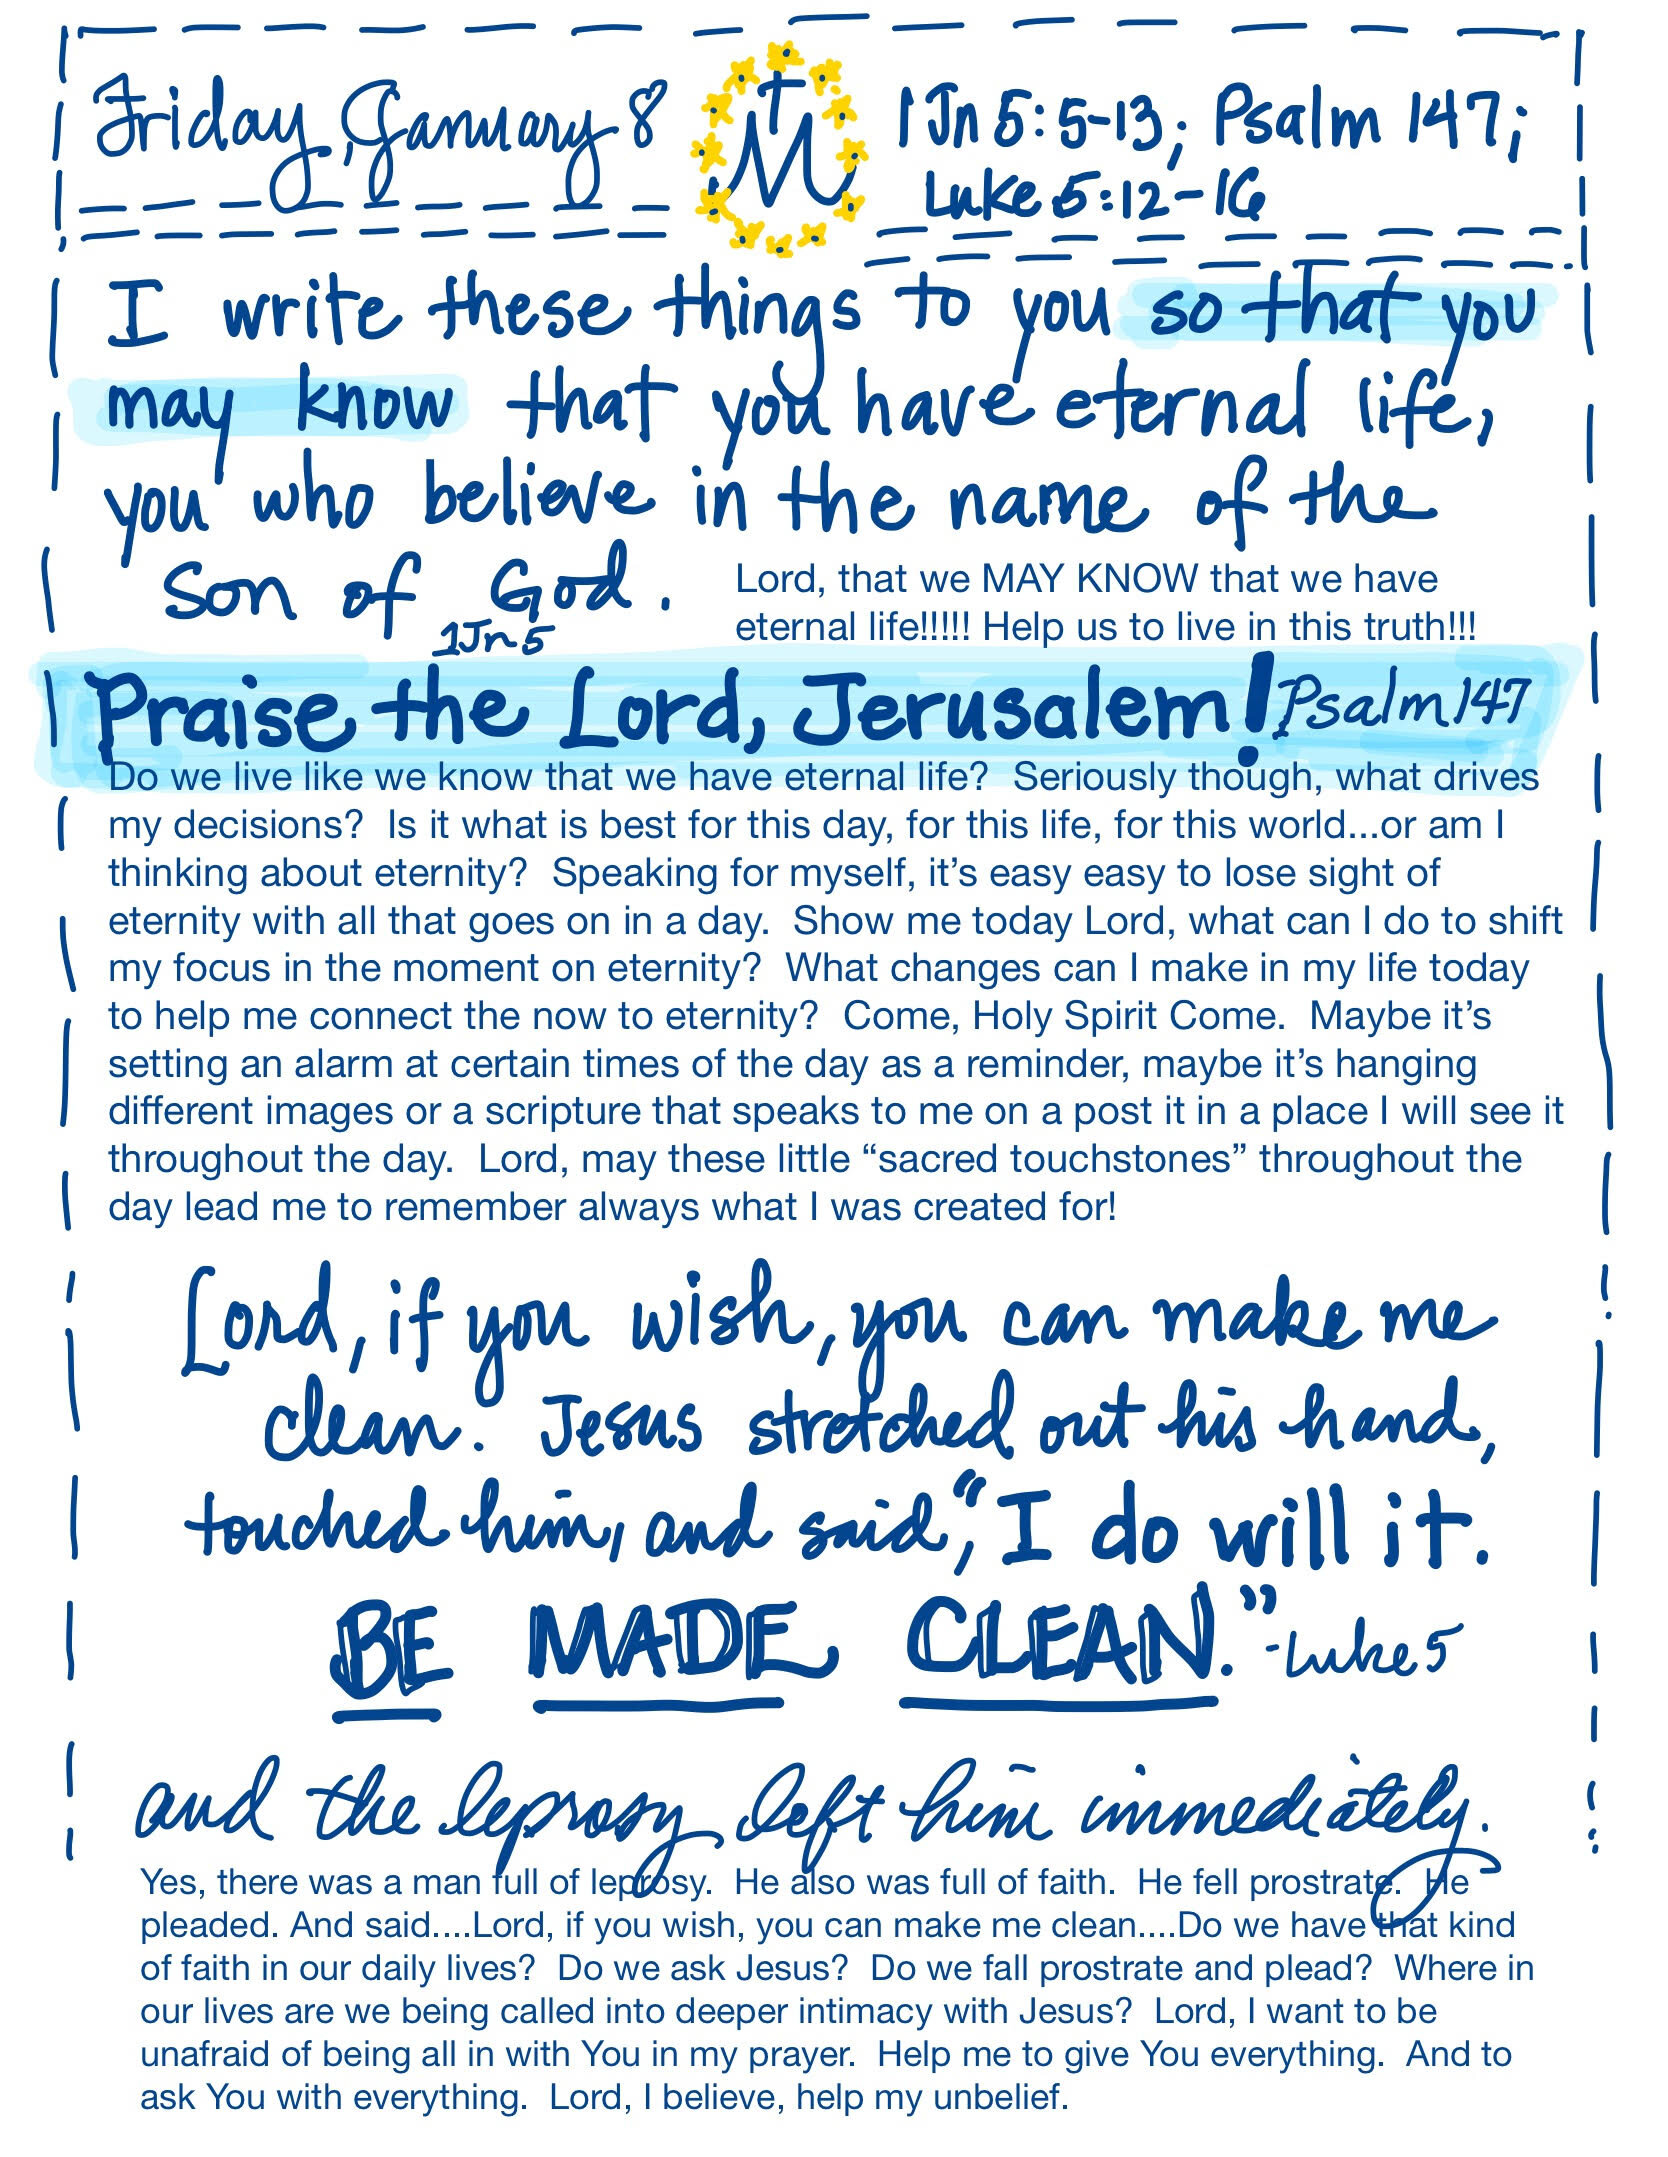 Friday, January 8
M
1 Jn 5:5-13; Psalm 147;
Luke 5:12-16
I write these things to you so that you
may know that you have eternal life,
you who believe in the name of the
Son of God.
1Jn 5
Lord, that we MAY KNOW that we have
eternal life!!!!! Help us to live in this truth!!!
Praise the Lord, Jerusalem! Psalm 147
Do we live like we know that we have eternal life?  Seriously though, what drives
my decisions?  Is it what is best for this day, for this life, for this world...or am I
thinking about eternity?  Speaking for myself, it's easy easy to lose sight of
eternity with all that goes on in a day.  Show me today Lord, what can I do to shift
my focus in the moment on eternity?  What changes can I make in my life today
to help me connect the now to eternity?  Come, Holy Spirit Come.  Maybe it's
setting an alarm at certain times of the day as a reminder, maybe it's hanging
different images or a scripture that speaks to me on a post it in a place I will see it
throughout the day.  Lord, may these little “sacred touchstones” throughout the
day lead me to remember always what I was created for!
Lord, if you wish, you can make me
clean. Jesus stretched out his hand,
touched him, and said, “I do will it.
BE MADE CLEAN.” -Luke 5
and the leprosy left him immediately.
Yes, there was a man full of leprosy.  He also was full of faith.  He fell prostrate.  He
pleaded. And said....Lord, if you wish, you can make me clean....Do we have that kind
of faith in our daily lives?  Do we ask Jesus?  Do we fall prostrate and plead?  Where in
our lives are we being called into deeper intimacy with Jesus?  Lord, I want to be
unafraid of being all in with You in my prayer.  Help me to give You everything.  And to
ask You with everything.  Lord, I believe, help my unbelief.